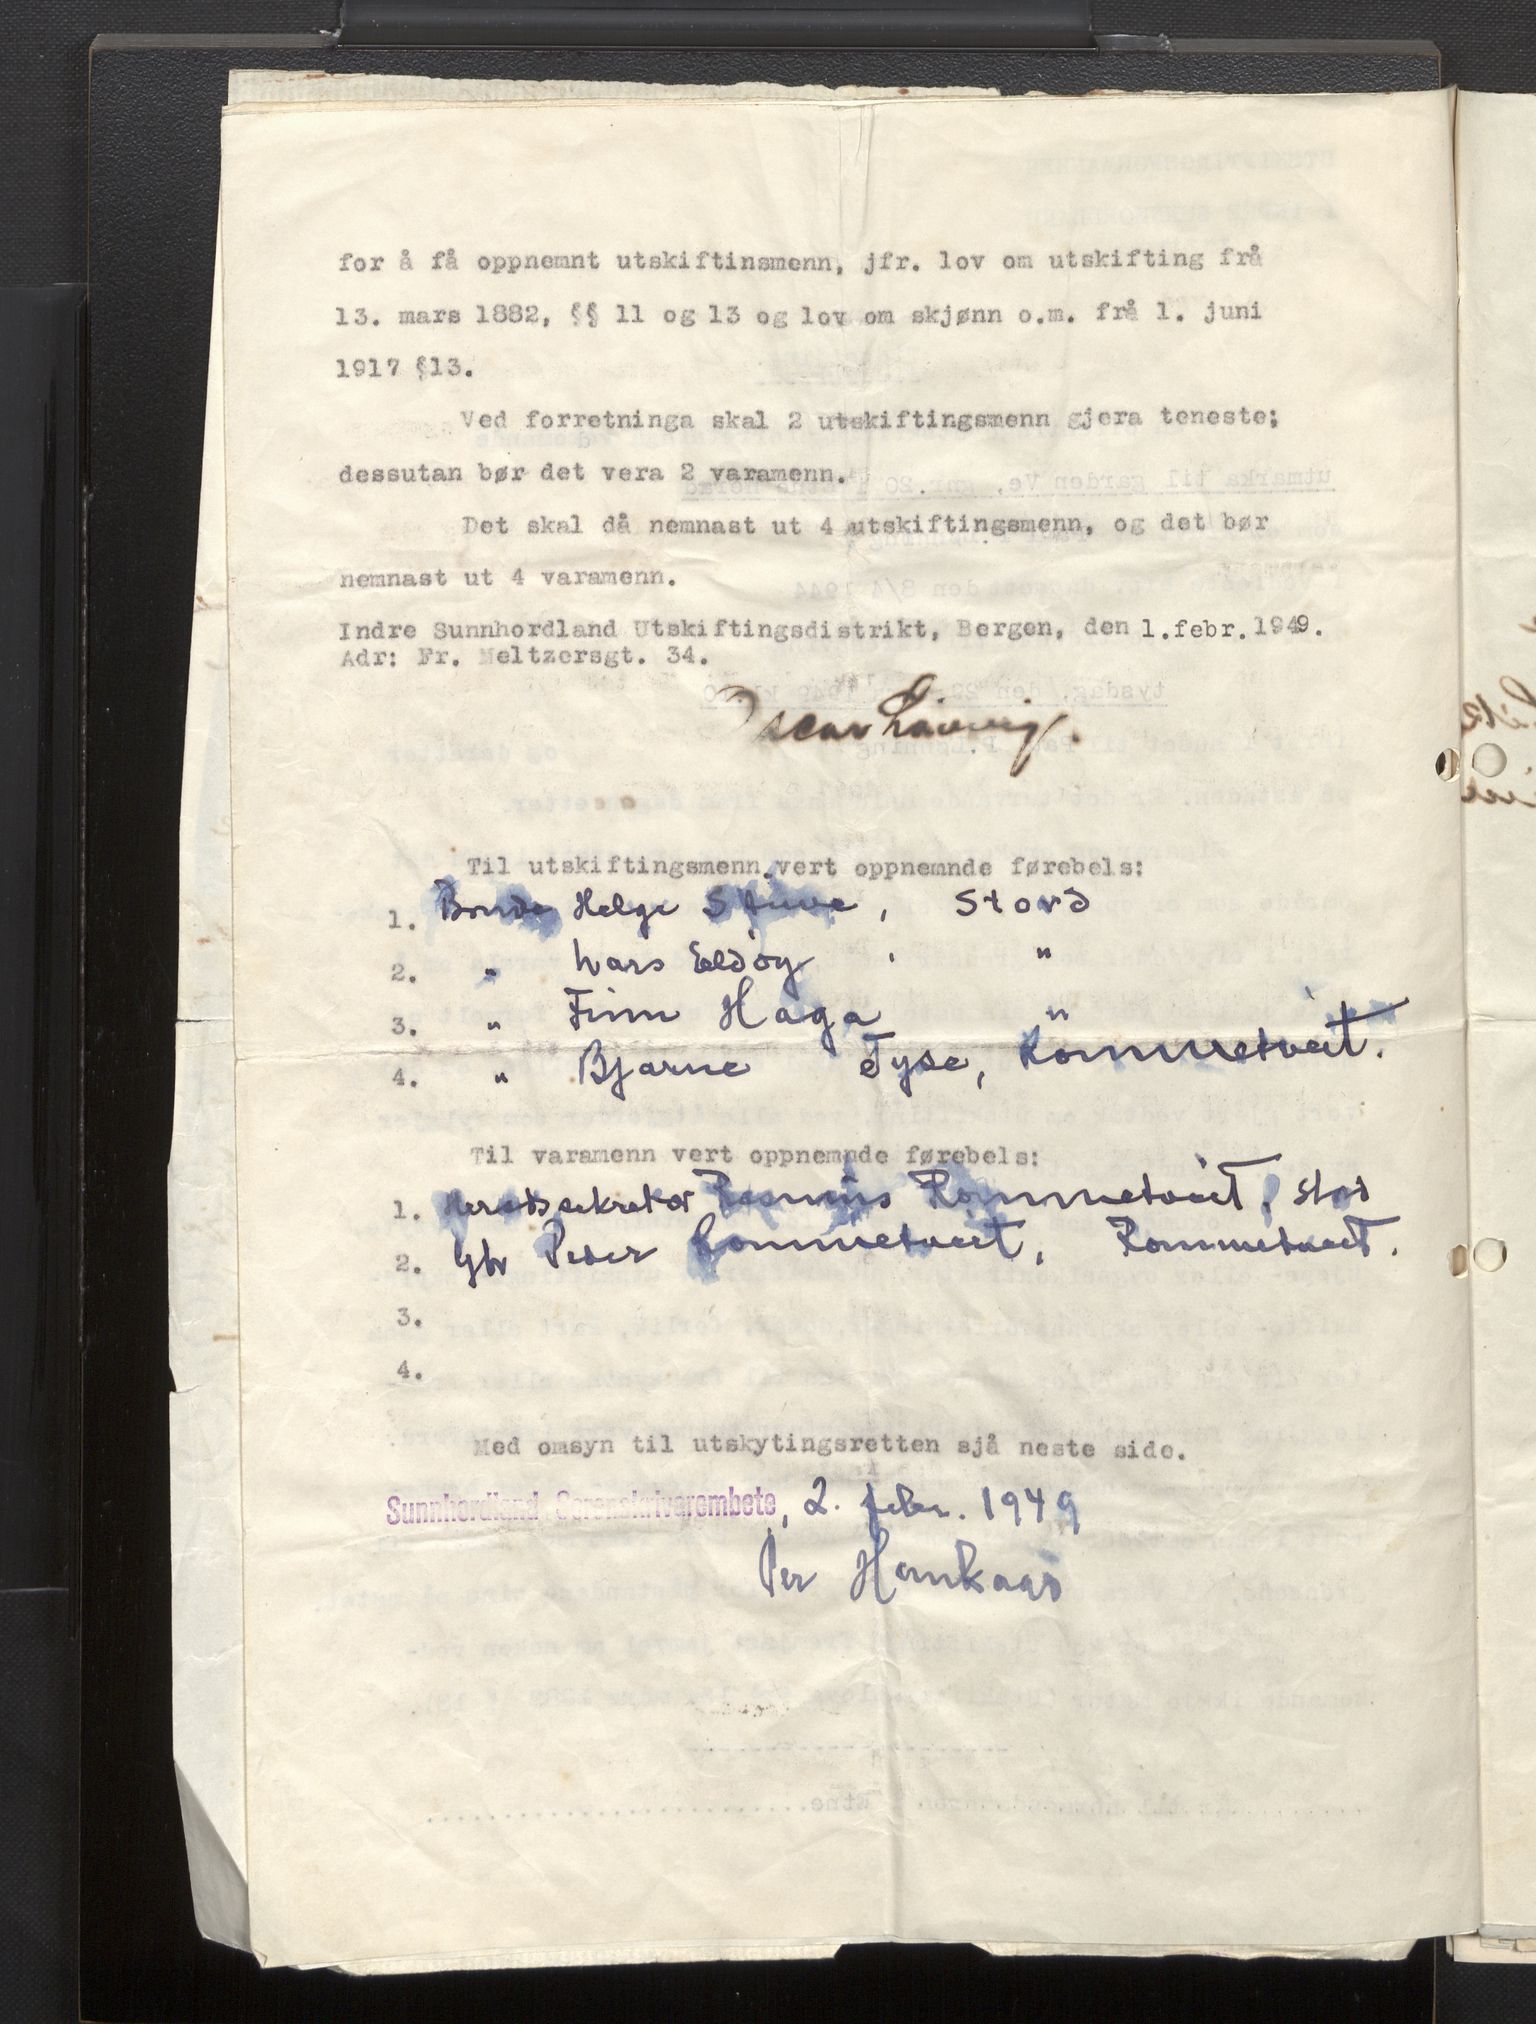 for å få oppnemnt utskiftinsmenn, jfr. lov om utskifting frå
13. mars 1882, §§ 11 og 13 og lov om skjønn o.m. frå 1. juni
1917 §13.
Ved forretninga skal 2 utskiftingsmenn gjera teneste;
dessutan bør det vera 2 varamenn.
Det skal då nemnast ut 4 utskiftingsmenn, og det bør
nemnast ut 4 varamenn.
Indre Sunnhordland Utskiftingsdistrikt, Bergen, den 1.febr. 1949.
Adr: Fr. Meltzersgt. 34.
Oscar
Til utskiftingsmenn vert oppnemnde førebels:
1. Bonde Helge Stuve, Stord
2. " Lars Eldøy, "
3. " Finn Haga "
4. " Bjarne Tyse, Rommetveit.
Til varamenn vert oppnemnde førebels:
1. Heradssekretær Rasmus Rommetveit, Stord
2. Gbr Peder Rommetveit, Rommetveit.
3.
4.
Med omsyn til utskytingsretten sjå neste side.
Sunnhordland Sorenskrivarembete, 2. febr. 1949
Per